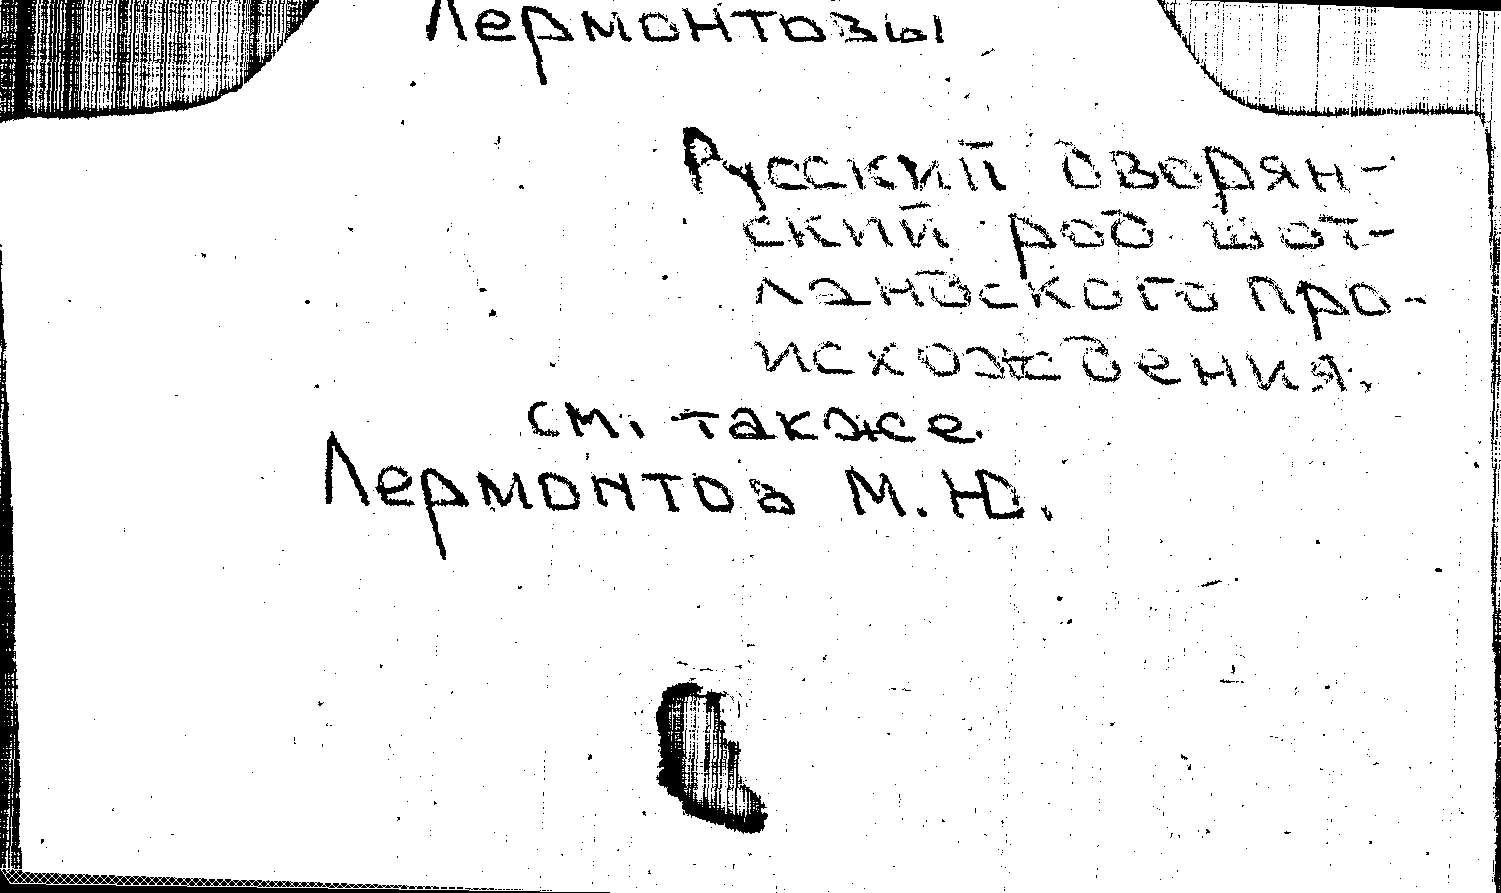 Лермонтовы
Русский дворян-
ский род шот-
ландского про-
исхождения.
см. также
Лермонтов М.Ю.